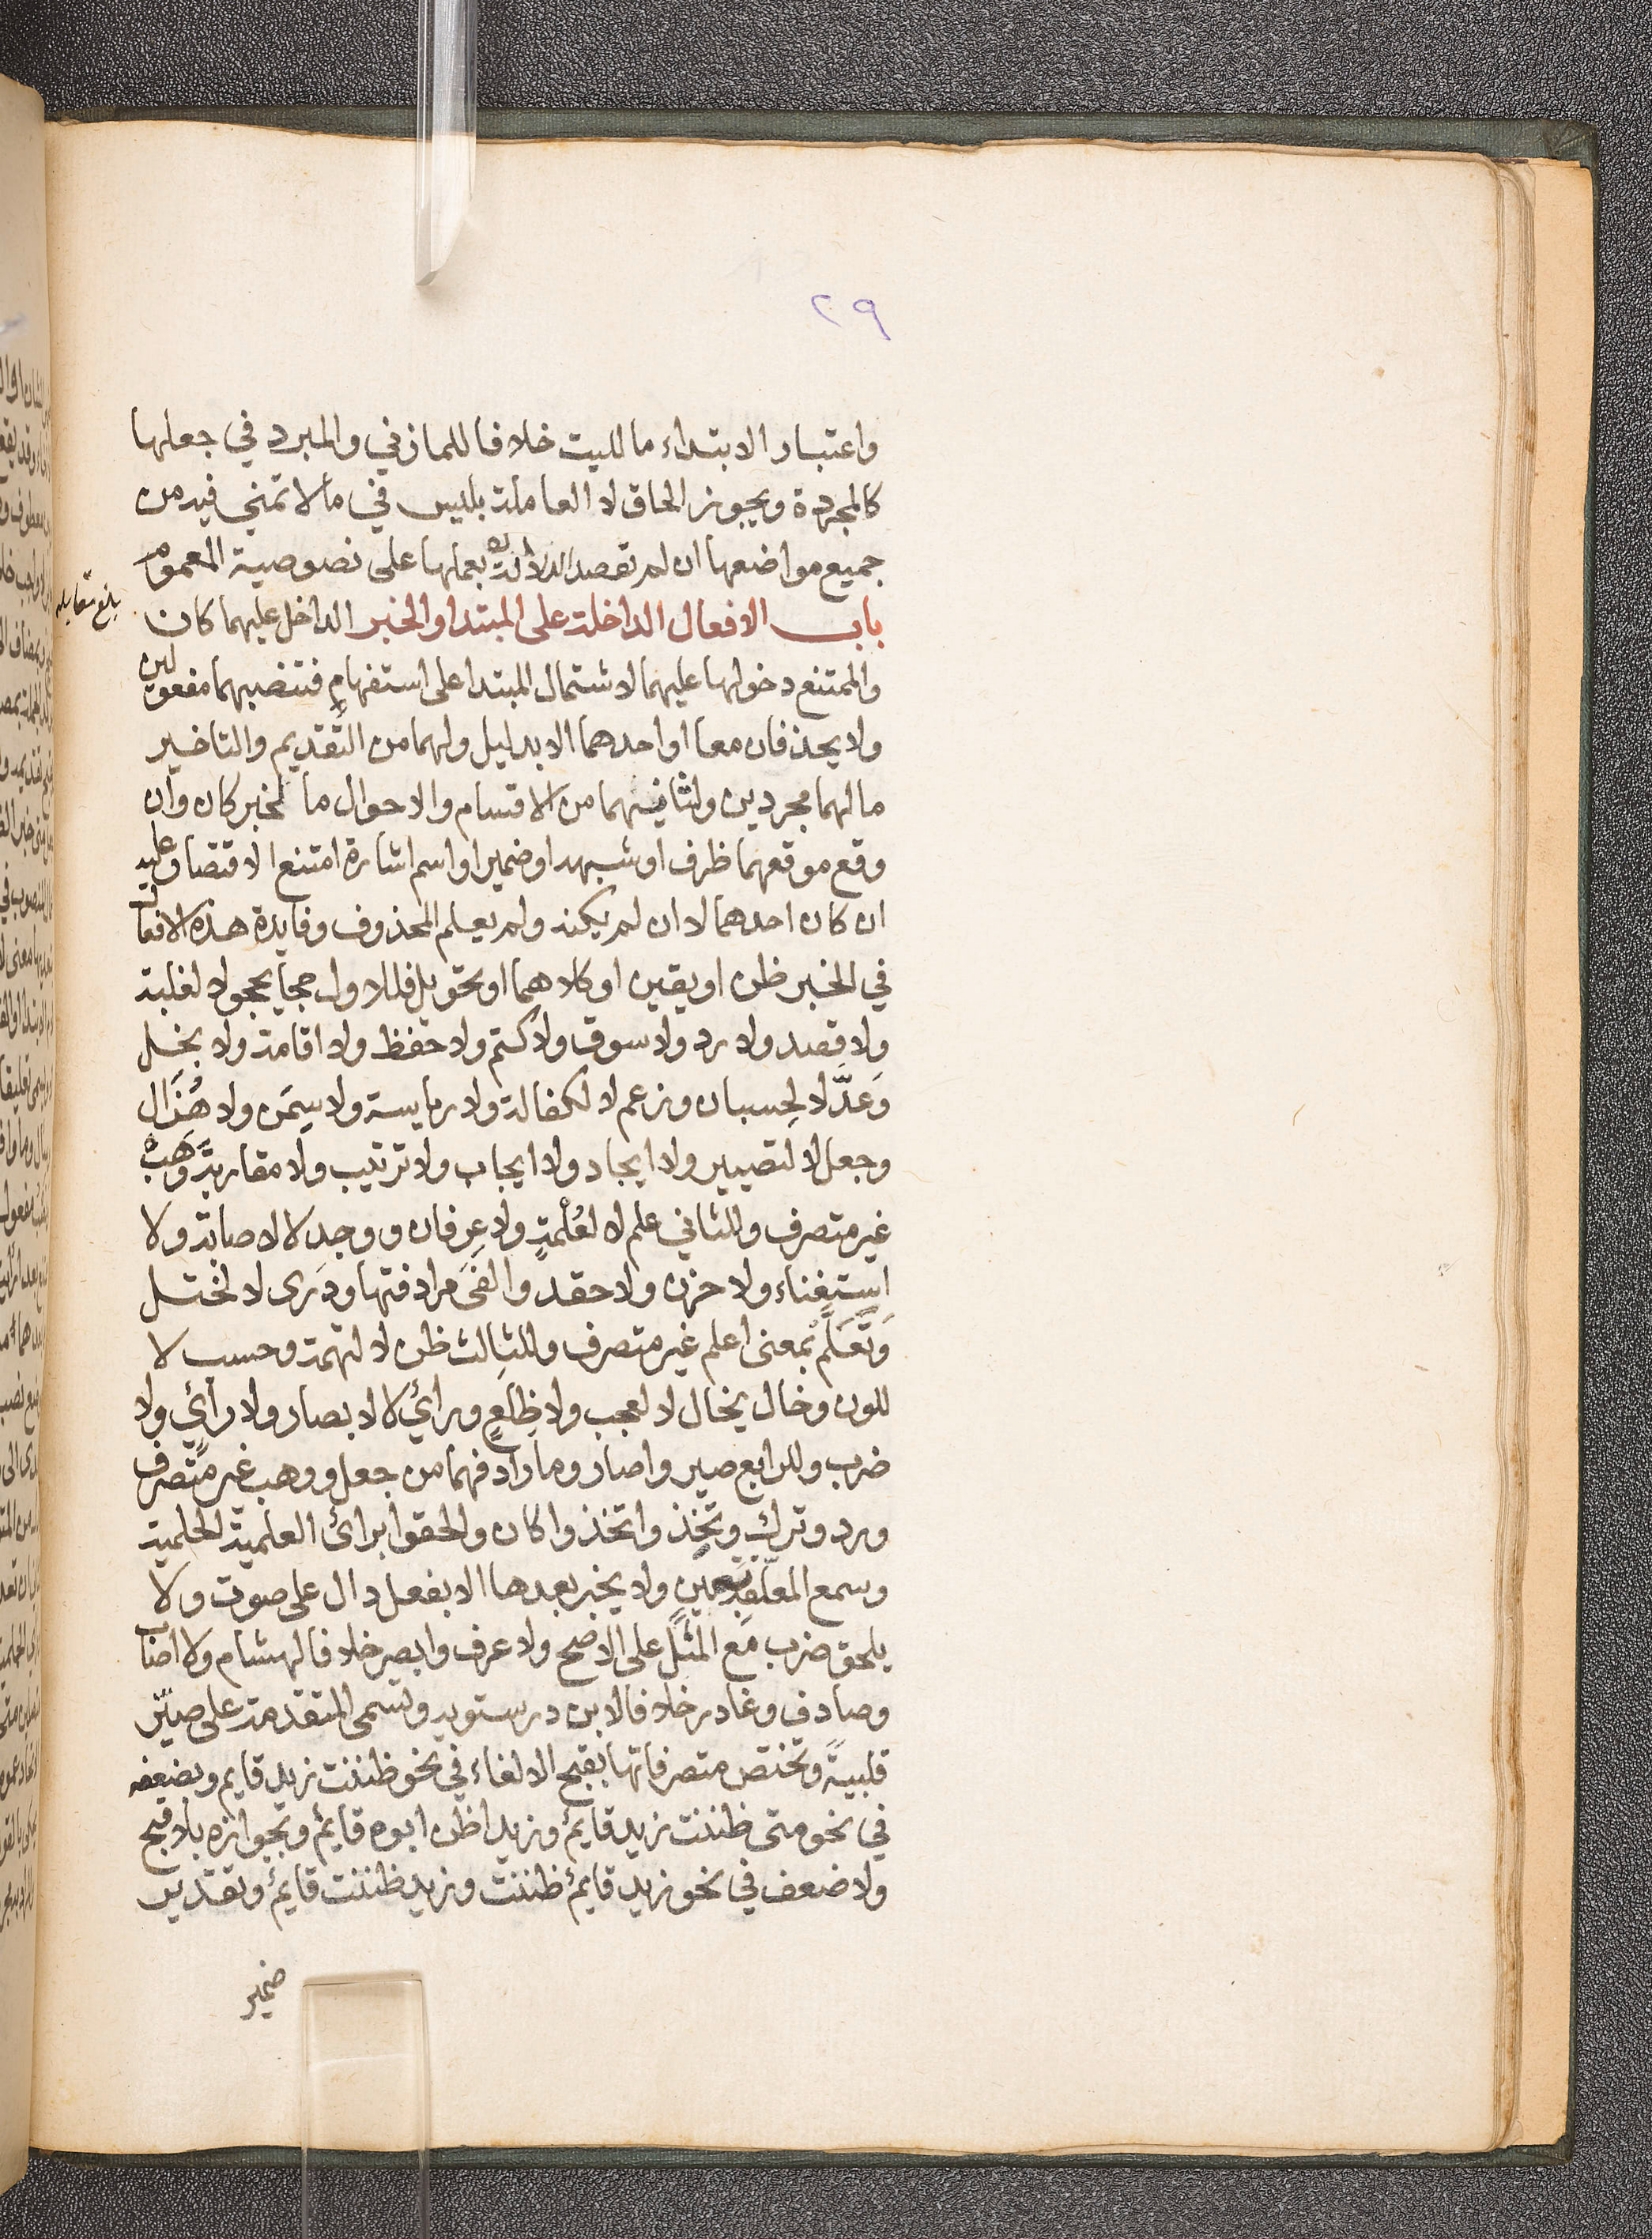 ٢٩
واعتبار الابتداء ما لليت خلافا للمازني والمبرد في جعلها
كالمجردة ويجوز الحاق لا العاملة بليس في ما لا تمني فيه من
جميع مواضعها ان لم تقصد الدلالة بعملها على نصوصية العموم
باب الافعال الداخلة على المبتدا والخبر الداخل عليهما كان
والممتنع دخولها عليهما لاشتمال المبتدا على استفهامٍ فتنصبهما مفعولين
ولا يحذفان معا او احدهما الا بدليل ولهما من التقديم والتاخير
ما لهما مجردين ولثانيهما من الاقسام والاحوال ما لخبر كان وان
وقع موقعهما ظرف او شبهه او ضمير او اسم اشارة امتنع الاقتصار عليه
ان كان احدهما لا ان لم يكنه ولم يعلم المحذوف وفايدة هذه الافعال
في الخبر ظن او يقين او كلاهما او تحويل فللاول حجا يحجو لا لغلبة
ولا قصد ولا رد ولا سوق ولا كتم ولا حفظ ولا اقامة ولا بخل
وعدَّ لا لحسبان وزعم لا لكفالة ولا رياسة ولا سِمَن ولا هُزال
وجعل لا لتصيير ولا ايجاد ولا ايجاب ولا ترتيب ولا مقاربة وهَبْ
غير متصرف وللثاني علم لا لعُلْمةٍ ولا عِرفان ووجد لا لاصابة ولا
استغناء ولا حزن ولا حقد والفى مرادفتها ودَرى لا لختل
وتَعَلَّمْ بمعنى اعلم غير متصرف وللثالث ظن لا لتهمة وحسب لا
للون وخال يخال لا لعجب ولا ظلعٍ ورأي لا لابصار ولا رأيٍ ولا
ضرب وللرابع صير واصار وما رادفهما من جعل ووهب غير متصرف
ورد وترك وتَخِذ واتخذ واكان والحقوا برأى العلمية الحلمية
وسمع المعلقة بعين ولا يخبر بعدها الا بفعل دال على صوت ولا
يلحق ضرب مع المثل على الاصح ولا عرف وابصر خلافا لهشام ولا اصاب
وصادف وغادر خلافا لابن درستويه وتسمى المتقدمة على صيّر
قلبيةً وتختص متصرفاتها بقبح الالغاء في نحو ظننت زيد قايم وبضعفه
في نحو متى ظننت زيد قايمٌ وزيد اظن ابوه قايمٌ وبجوازه بلا قبح
ولا ضعف في نحو زيد قايمٌ ظننت وزيد ظننت قايمٌ وتقدير
ضمير
بلغ مقابلة